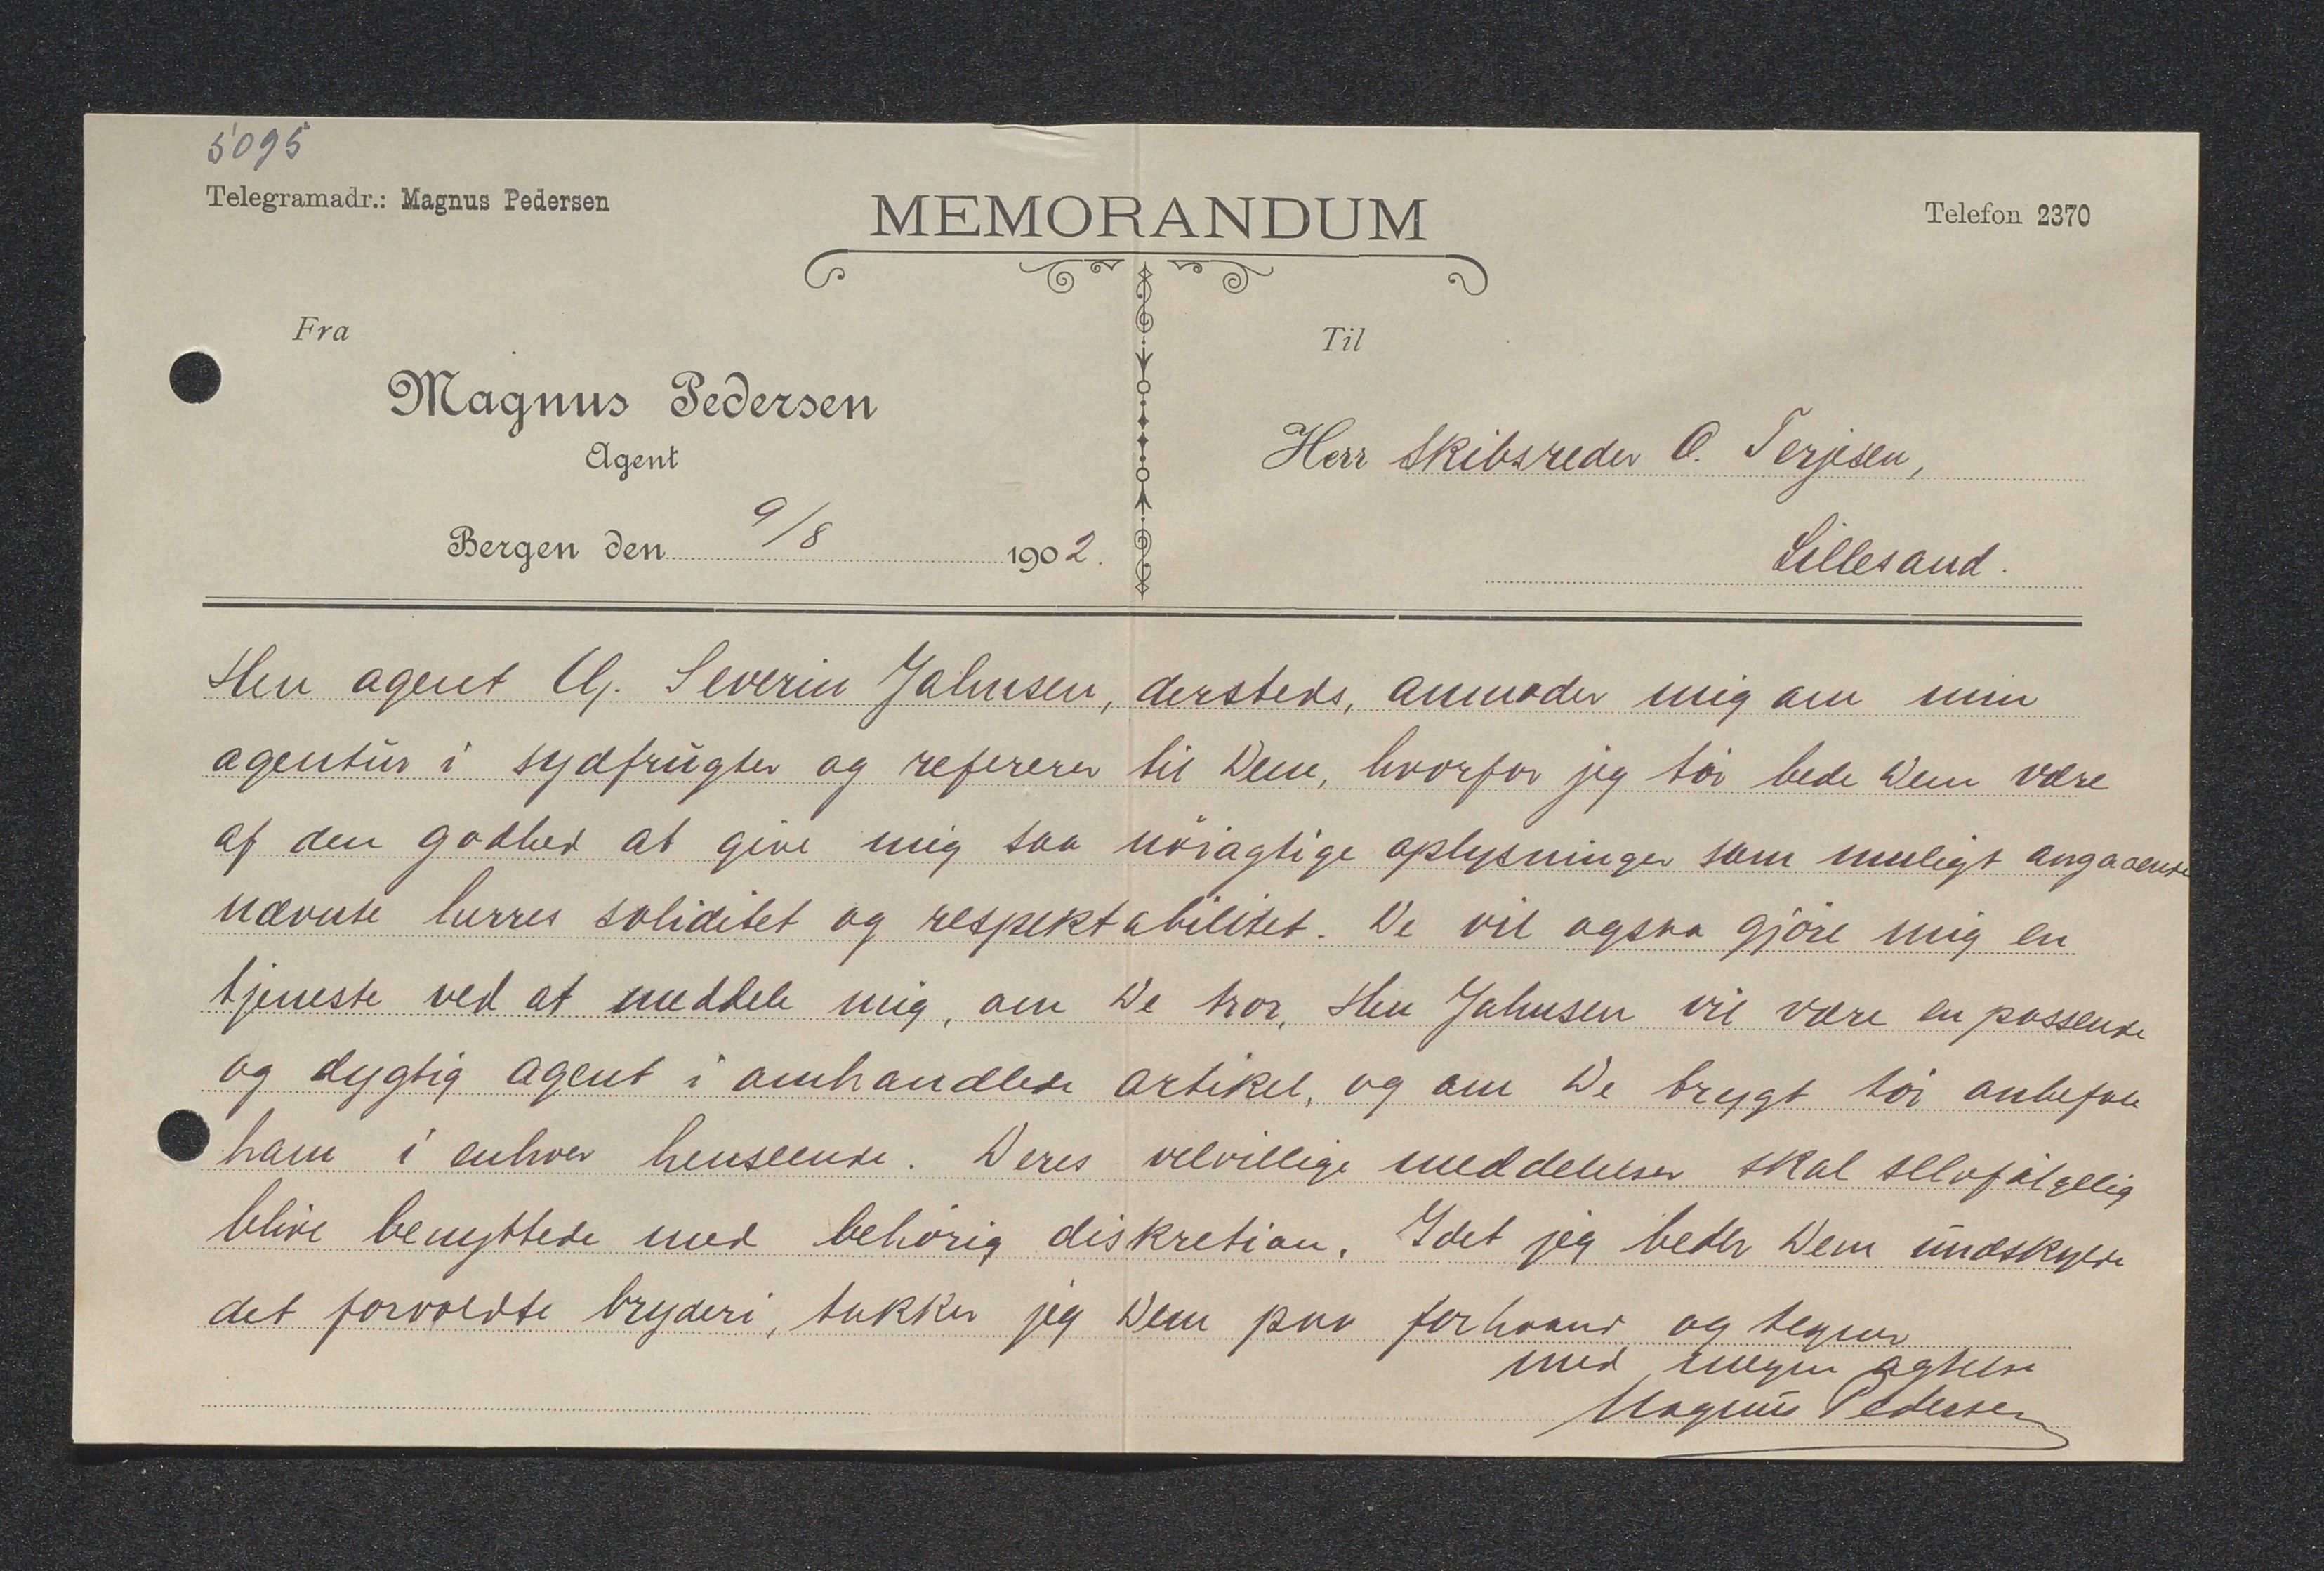 5095
Telegramadr.: Magnus Pedersen
MEMORANDUM
Telefon 2370
Fra
Magnus Pedersen
Agent
Bergen den 9/8 1902.
Til
Herr Skibsreder O. Terjesen,
Lillesand.
Herr agent Severin Jahnsen, dersteds, anmoder mig om min
agentur i sydfrugter og refererer til Dem, hvorfor jeg tör bede Dem være
af den godhed at give mig saa nöiagtige oplysninger som muligt angaaende
nævnte herres soliditet og respektabilitet. De vil ogsaa gjöre mig en
tjeneste ved at meddele mig, om De tror, Herr Jahnsen vil være en passende
og dygtig agent i omhandlede artikel, og om De trygt tör anbefale
ham i enhver henseende. Deres velvillige meddelelser skal selvfölgelig
blive benyttede med behörig diskretion. Idet jeg beder Dem undskylde
det forvoldte bryderi, takker jeg Dem paa forhaand og tegner
med megen agtelse
Magnus Pedersen